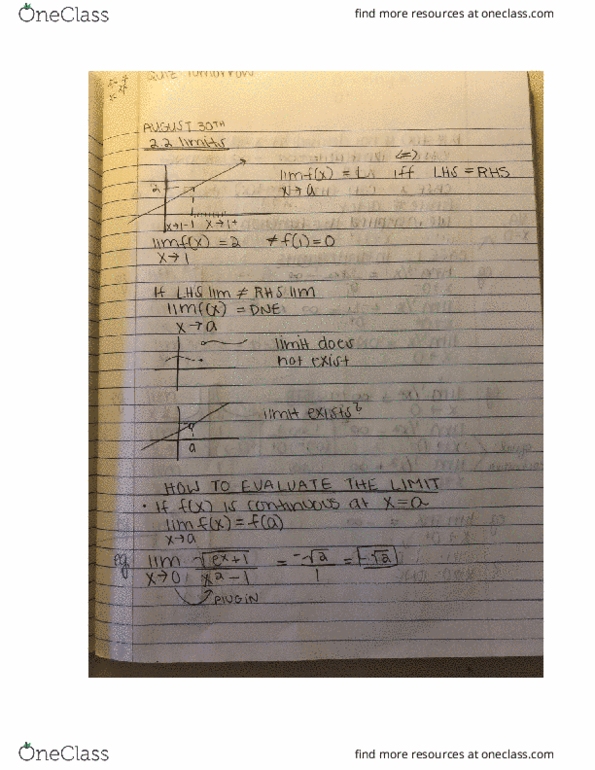 OneClass
find more resources at oneclass.com
Quiz Tomorrow
AUGUST 30TH
2.2 limits
(=)
lim f(x) = L iff LHS = RHS
x→a
2
x→1- x→1+
lim f(x) = 2 ≠ f(1) = 0
x→1
If LHS lim ≠ RHS lim
lim f(x) = DNE
x→a
limit does
not exist
limit exists
a
HOW TO EVALUATE THE LIMIT
• If f(x) is continuous at x=a
lim f(x) = f(a)
x→a
eg lim √ex+1 / x2-1 = -√2 / 1 = -√2
x→0
PlugIN
OneClass
find more resources at oneclass.com